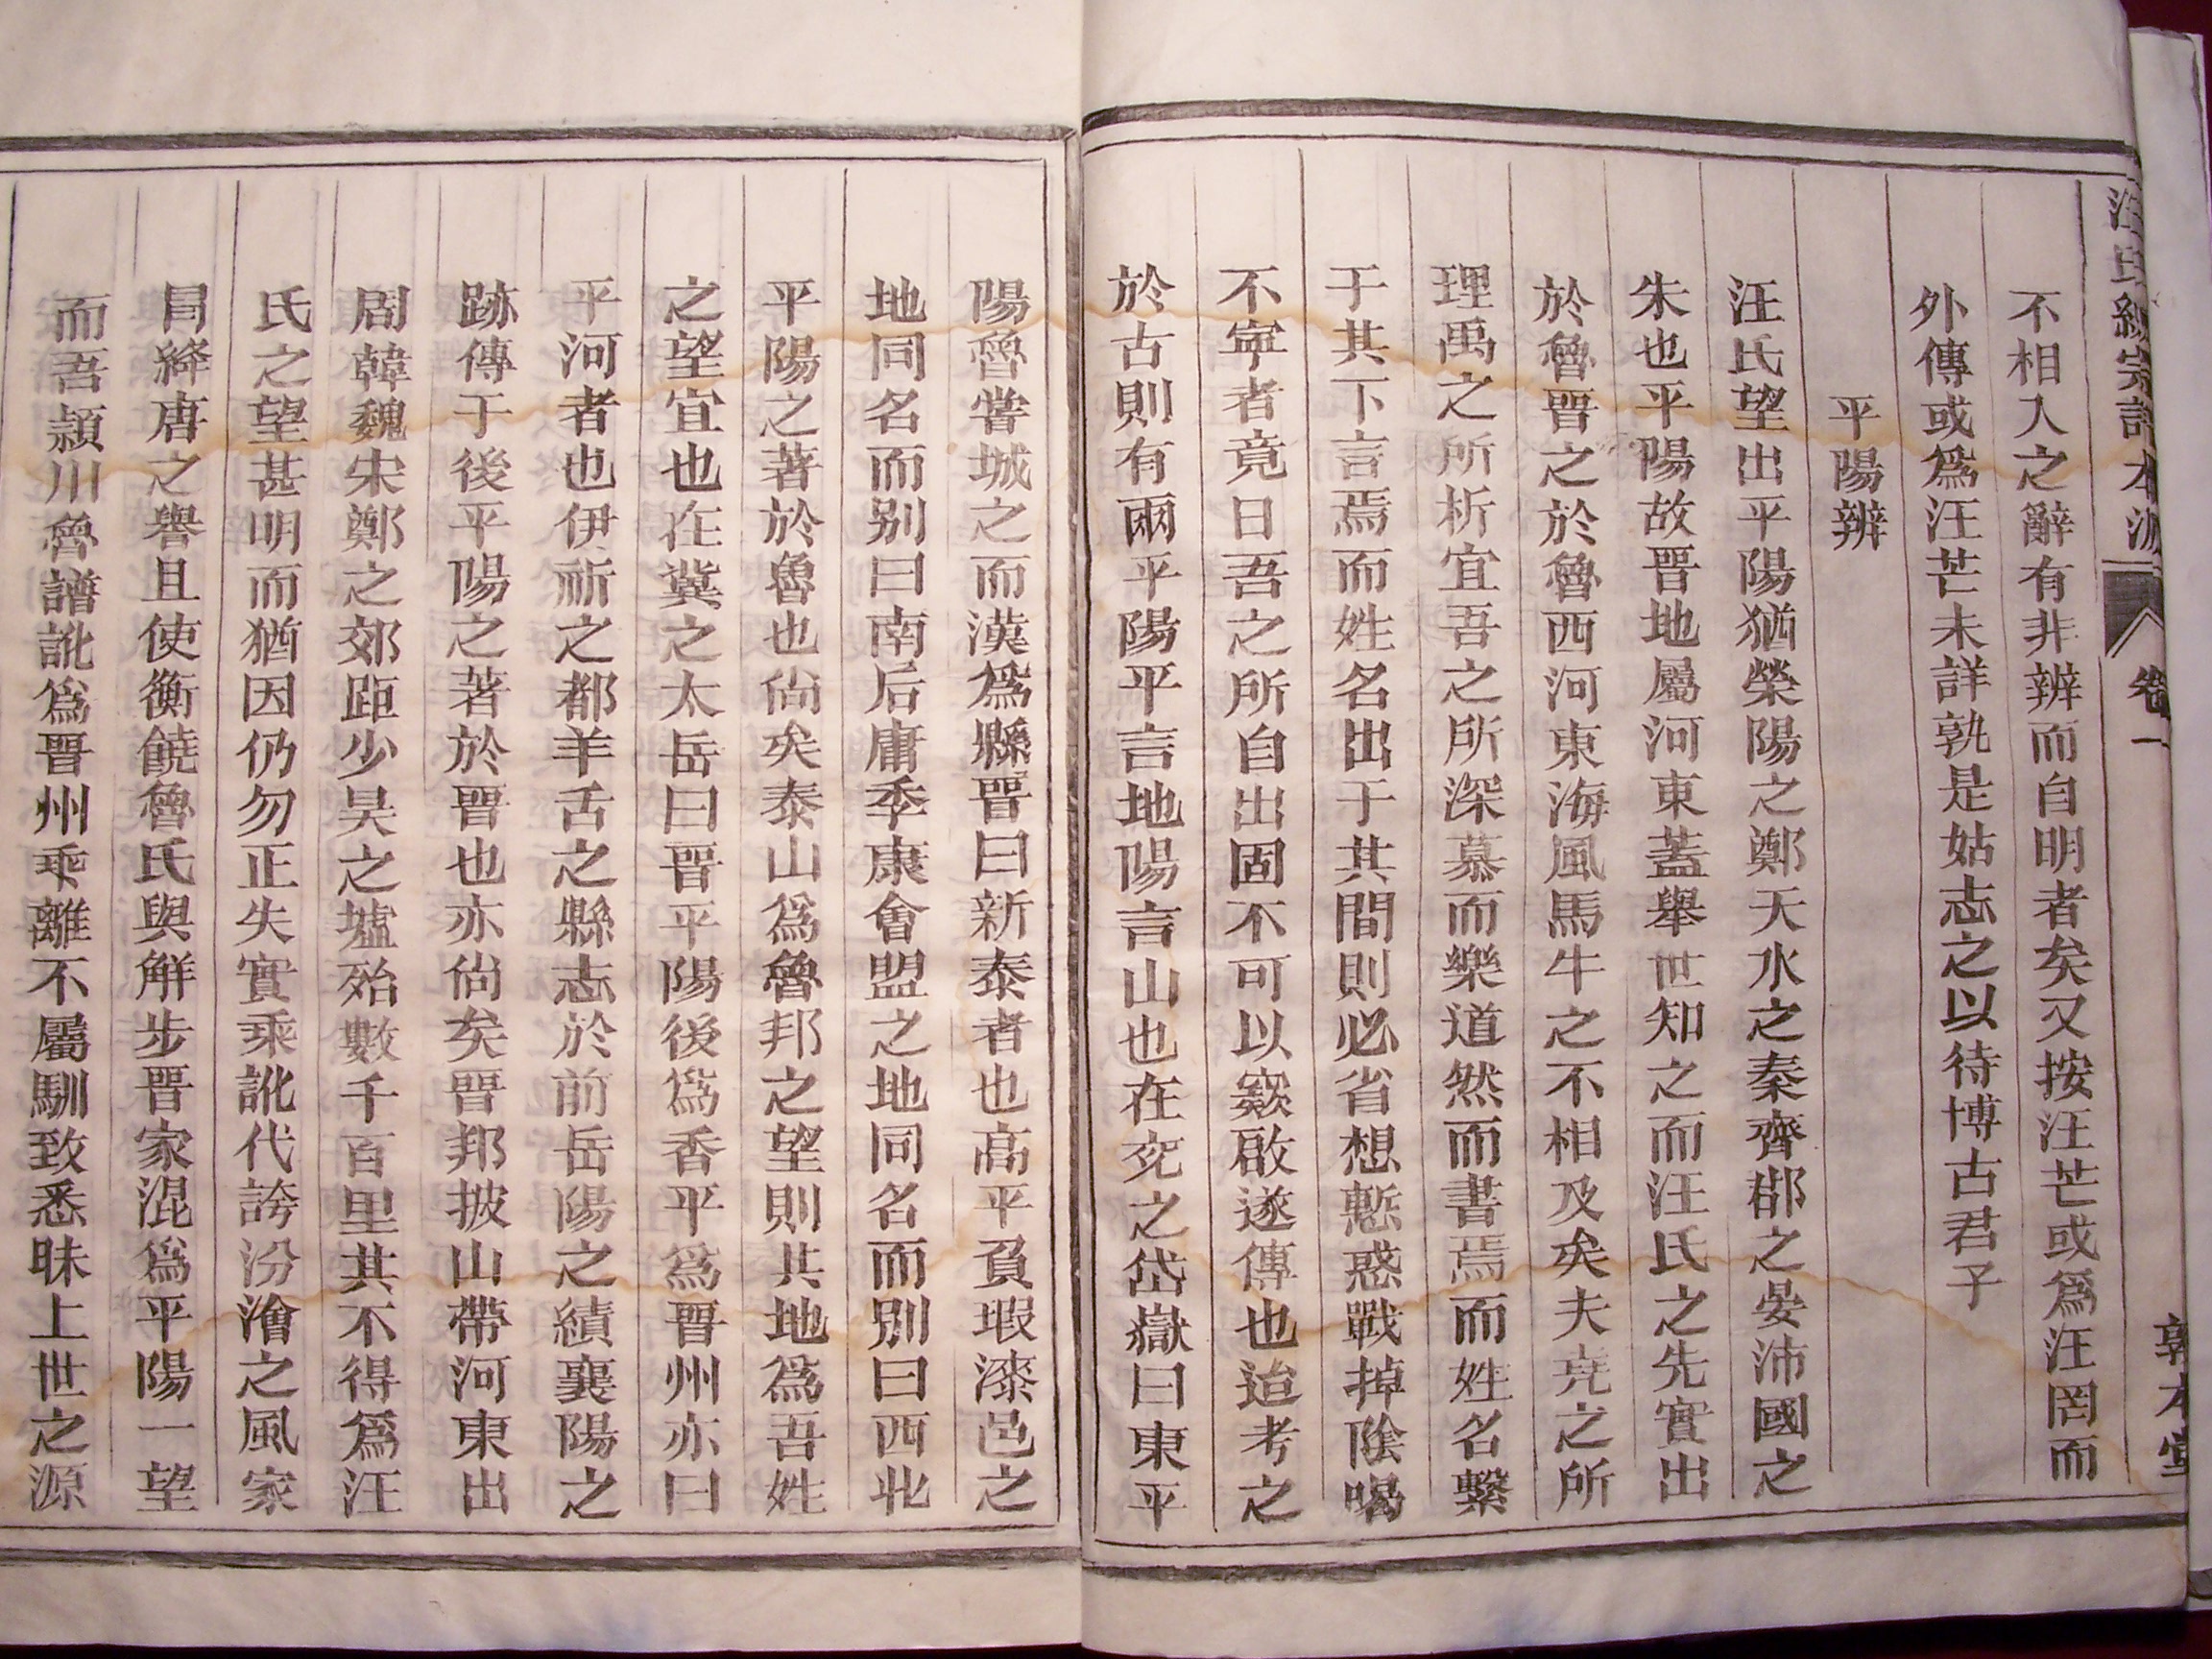 汪氏統宗譜本源 卷一 敦本堂
不相入之辭有非辨而自明者矣又按汪芒或爲汪罔而
外傳或爲汪芒未詳孰是姑志之以待博古君子
平陽辨
汪氏望出平陽猶榮陽之鄭天水之秦齊郡之晏沛國之
朱也平陽故晉地屬河東蓋舉世知之而汪氏之先實出
於魯晉之於魯西河東海風馬牛之不相及矣夫堯之所
理禹之所析宜吾之所深慕而樂道然而書焉而姓名繫
于其下言焉而姓名出于其間則必省想慙惑戰掉陰喝
不寧者竟日吾之所自出固不可以窾啟遂傳也迨考之
於古則有兩平陽平言地陽言山也在兖之岱嶽曰東平
陽魯嘗城之而漢爲縣晉曰新泰者也高平負瑕漆邑之
地同名而别曰南后庸季康會盟之地同名而别曰西北
平陽之著於魯也尙矣泰山爲魯邦之望則共地爲吾姓
之望宜也在冀之太岳曰晉平陽後爲香平爲晉州亦曰
平河者也伊祈之都羊舌之縣志於前岳陽之績襄陽之
跡傳于後平陽之著於晉也亦尙矣晉邦披山帶河東出
周韓魏宋鄭之郊距少昊之墟殆數千百里其不得爲汪
氏之望甚明而猶因仍勿正失實乘訛代誇汾澮之風家
冐絳唐之譽且使衡饒魯氏與解步晉家混爲平陽一望
而吾潁川魯譜訛爲晉州乖離不屬馴致悉昧上世之源